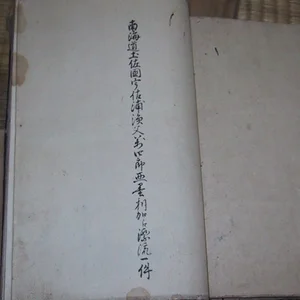 南海道土佐國宇佐浦漁父萬次郎亜墨利加ゟ漂流一件